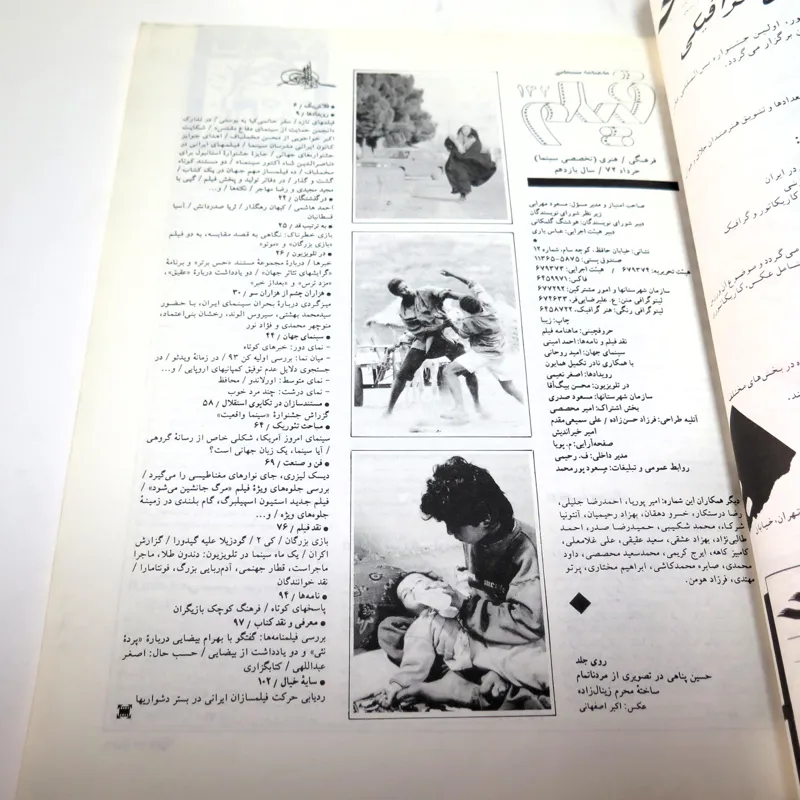 ماهنامه سینمایی
فیلم
۱۴۲
فرهنگی / هنری (تخصصی سینما)
خرداد ۷۲ / سال یازدهم
صاحب امتیاز و مدیر مسؤل: مسعود مهرابی
زیر نظر شورای نویسندگان
دبیر شورای نویسندگان: هوشنگ گلمکانی
دبیر هیئت اجرایی: عباس یاری
نشانی: خیابان حافظ، کوچه سام، شماره ۱۲
صندوق پستی: ۵۸۷۵-۱۱۳۶۵
هیئت تحریریه: ۶۷۹۳۷۱ / هیئت اجرایی: ۶۷۹۳۷۳
فاکس: ۶۴۵۹۹۷۱
سازمان شهرستانها و امور مشترکین: ۶۷۷۲۹۲
لیتوگرافی متن: ع. علیرضایی‌فر، ۶۷۲۶۳۳
لیتوگرافی رنگی: هنر گرافیک، ۶۴۵۸۷۲۲
چاپ: زیبا
حروفچینی: ماهنامه فیلم
نقد فیلم و نامه‌ها: احمد امینی
سینمای جهان: امید روحانی
با همکاری نادر تکمیل همایون
رویدادها: اصغر نعیمی
در تلویزیون: محسن بیگ‌آقا
سازمان شهرستانها: مسعود صدری
بخش اشتراک: امیر محصصی
آتلیه طراحی: فرزاد حسن‌زاده / علی سمیعی‌مقدم
امیر خیراندیش
صفحه‌آرایی: م. پویا
مدیر داخلی: ف. رحیمی
روابط عمومی و تبلیغات: مسعود پورمحمد
دیگر همکاران این شماره: امیر پوریا، احمدرضا جلیلی،
رضا درستکار، خسرو دهقان، بهزاد رحیمیان، آنتونیا
شرکا، محمد شکیبی، حمیدرضا صدر، احمد
طالبی‌نژاد، بهزاد عشقی، سعید عقیقی، علی غلامعلی،
کامبیز کاهه، ایرج کریمی، محمدسعید محصصی، داود
محمدی، صابره محمدکاشی، ابراهیم مختاری، پرتو
مهتدی، فرزاد هومن.
روی جلد
حسین پناهی در تصویری از مردناتمام
ساختهٔ محرم زینال‌زاده
عکس: اکبر اصفهانی
● فلاش‌بک / ۶
● رویدادها / ۹
فیلمهای تازه / سفر حاتمی‌کیا به بوسنی / در تدارک
«انجمن حمایت از سینمای دفاع مقدس» / شکایت
اکبر خواجویی از محسن مخملباف / اهدای جوایز
کانون ایرانی مدرسان سینما / فیلمهای ایرانی در
جشنواره‌های جهانی / جایزهٔ جشنوارهٔ استانبول برای
ناصرالدین شاه آکتور سینما / دو مستند کوتاه
مخملباف / ده فیلمساز مهم جهان در یک کتاب /
گشت و گذار / در دفاتر تولید و پخش فیلم / گپی با
مجید مجیدی و رضا مهاجر / نکته‌ها / و...
● درگذشتگان / ۲۲
احمد هاشمی / کیهان رهگذار / ثریا صدردانش / آسیا
قسطانیان
● به ترتیب قد / ۲۵
بازی خطرناک: نگاهی به قصد مقایسه، به دو فیلم
«بازی بزرگان» و «موتو»
● در تلویزیون / ۲۶
خبرها / دربارهٔ مجموعهٔ مستند «حس برتر» و برنامهٔ
«گرایشهای تئاتر جهان» / دو یادداشت دربارهٔ «عقیق»،
«مزد ترس» و «بعداز خبر»
● هزاران چشم از هزاران سو / ۳۰
میزگردی دربارهٔ بحران سینمای ایران، با حضور
سیدمحمد بهشتی، سیروس الوند، رخشان بنی‌اعتماد،
منوچهر محمدی و فؤاد نور
● سینمای جهان / ۴۴
- نمای دور: خبرهای کوتاه
- میان نما: بررسی اولیه کن ۹۳ / در زمانهٔ ویدئو / در
جستجوی دلایل عدم توفیق کمپانیهای اروپایی / و...
- نمای متوسط: اورلاندو / محافظ
- نمای درشت: چند مرد خوب
● مستندسازان در تکاپوی استقلال / ۵۸
گزارش جشنوارهٔ «سینما واقعیت»
● مباحث تئوریک / ۶۴
سینمای امروز آمریکا، شکلی خاص از رسانهٔ گروهی
/ آیا سینما، یک زبان جهانی است؟
● فن و صنعت / ۶۹
دیسک لیزری، جای نوارهای مغناطیسی را می‌گیرد /
بررسی جلوه‌های ویژهٔ فیلم «مرگ جانشین می‌شود» /
فیلم جدید استیون اسپیلبرگ، گام بلندی در زمینهٔ
جلوه‌های ویژه / و...
● نقد فیلم / ۷۶
بازی بزرگان / کی ۲ / گودزیلا علیه گیدورا / گزارش
اکران / یک ماه سینما در تلویزیون: دندون طلا، ماجرا
ماجراست، قطار جهنمی، آدم‌ربایی بزرگ، فونتامارا /
نقد خوانندگان
● نامه‌ها / ۹۴
پاسخهای کوتاه / فرهنگ کوچک بازیگران
● معرفی و نقد کتاب / ۹۷
بررسی فیلمنامه‌ها: گفتگو با بهرام بیضایی دربارهٔ «پردهٔ
نئی» و دو یادداشت از بیضایی / حسب حال: اصغر
عبداللهی / کتابگزاری
● سایهٔ خیال / ۱۰۲
ردیابی حرکت فیلمسازان ایرانی در بستر دشواریها
گرافیکی
اولین جشنواره بین‌المللی
برگزار می‌گردد.
در ایران
کاریکاتور و گرافیک
در بخش‌های مختلف